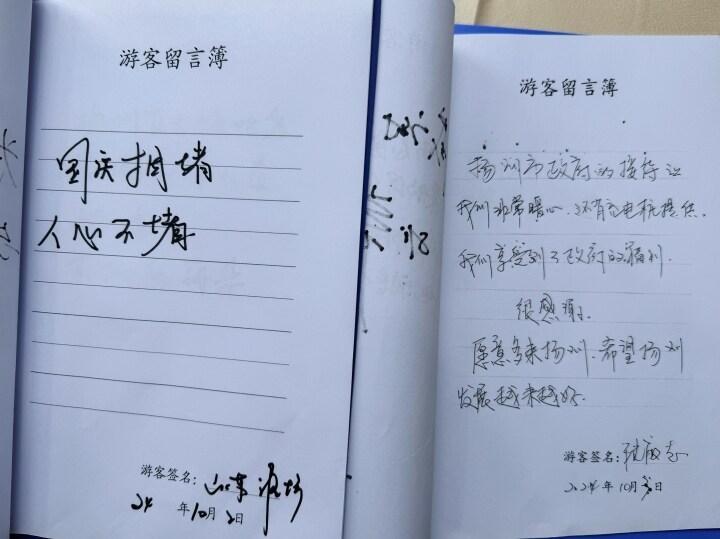 游客留言簿
国庆拥堵
人心不堵
游客签名：山东潍坊
24年10月2日
游客留言簿
扬州市政府的接待让
我们非常暖心.还有充电桩提供.
我们享受到了政府的福利.
很感谢.
愿意多来扬州.希望扬州
发展越来越好.
游客签名：
2024年10月 日